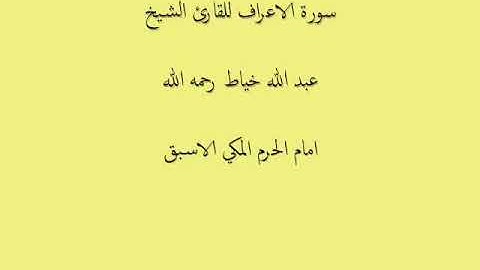 سورة الاعراف للقارئ الشيخ
عبد الله خياط رحمه الله
امام الحرم المكي الاسبق